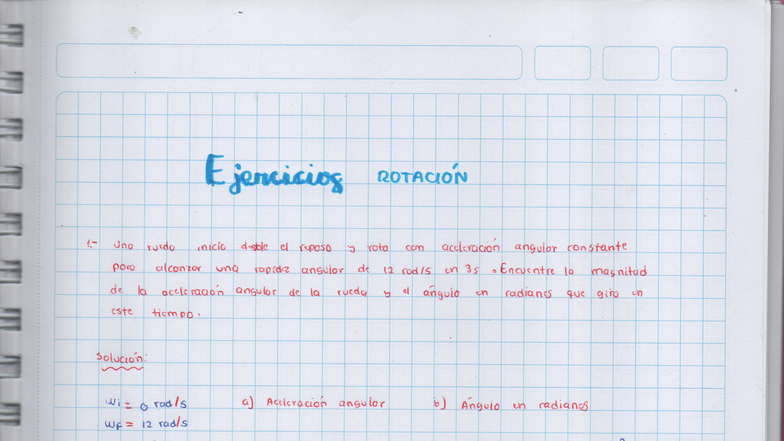 Ejercicios ROTACIÓN
1.- Una rueda inicia desde el reposo y rota con aceleración angular constante
para alcanzar una rapidez angular de 12 rad/s en 3s. Encuentre la magnitud
de la aceleración angular de la rueda y el ángulo en radianes que gira en
este tiempo.
Solución:
wi = 0 rad/s a) Aceleración angular b) Ángulo en radianes
wf = 12 rad/s